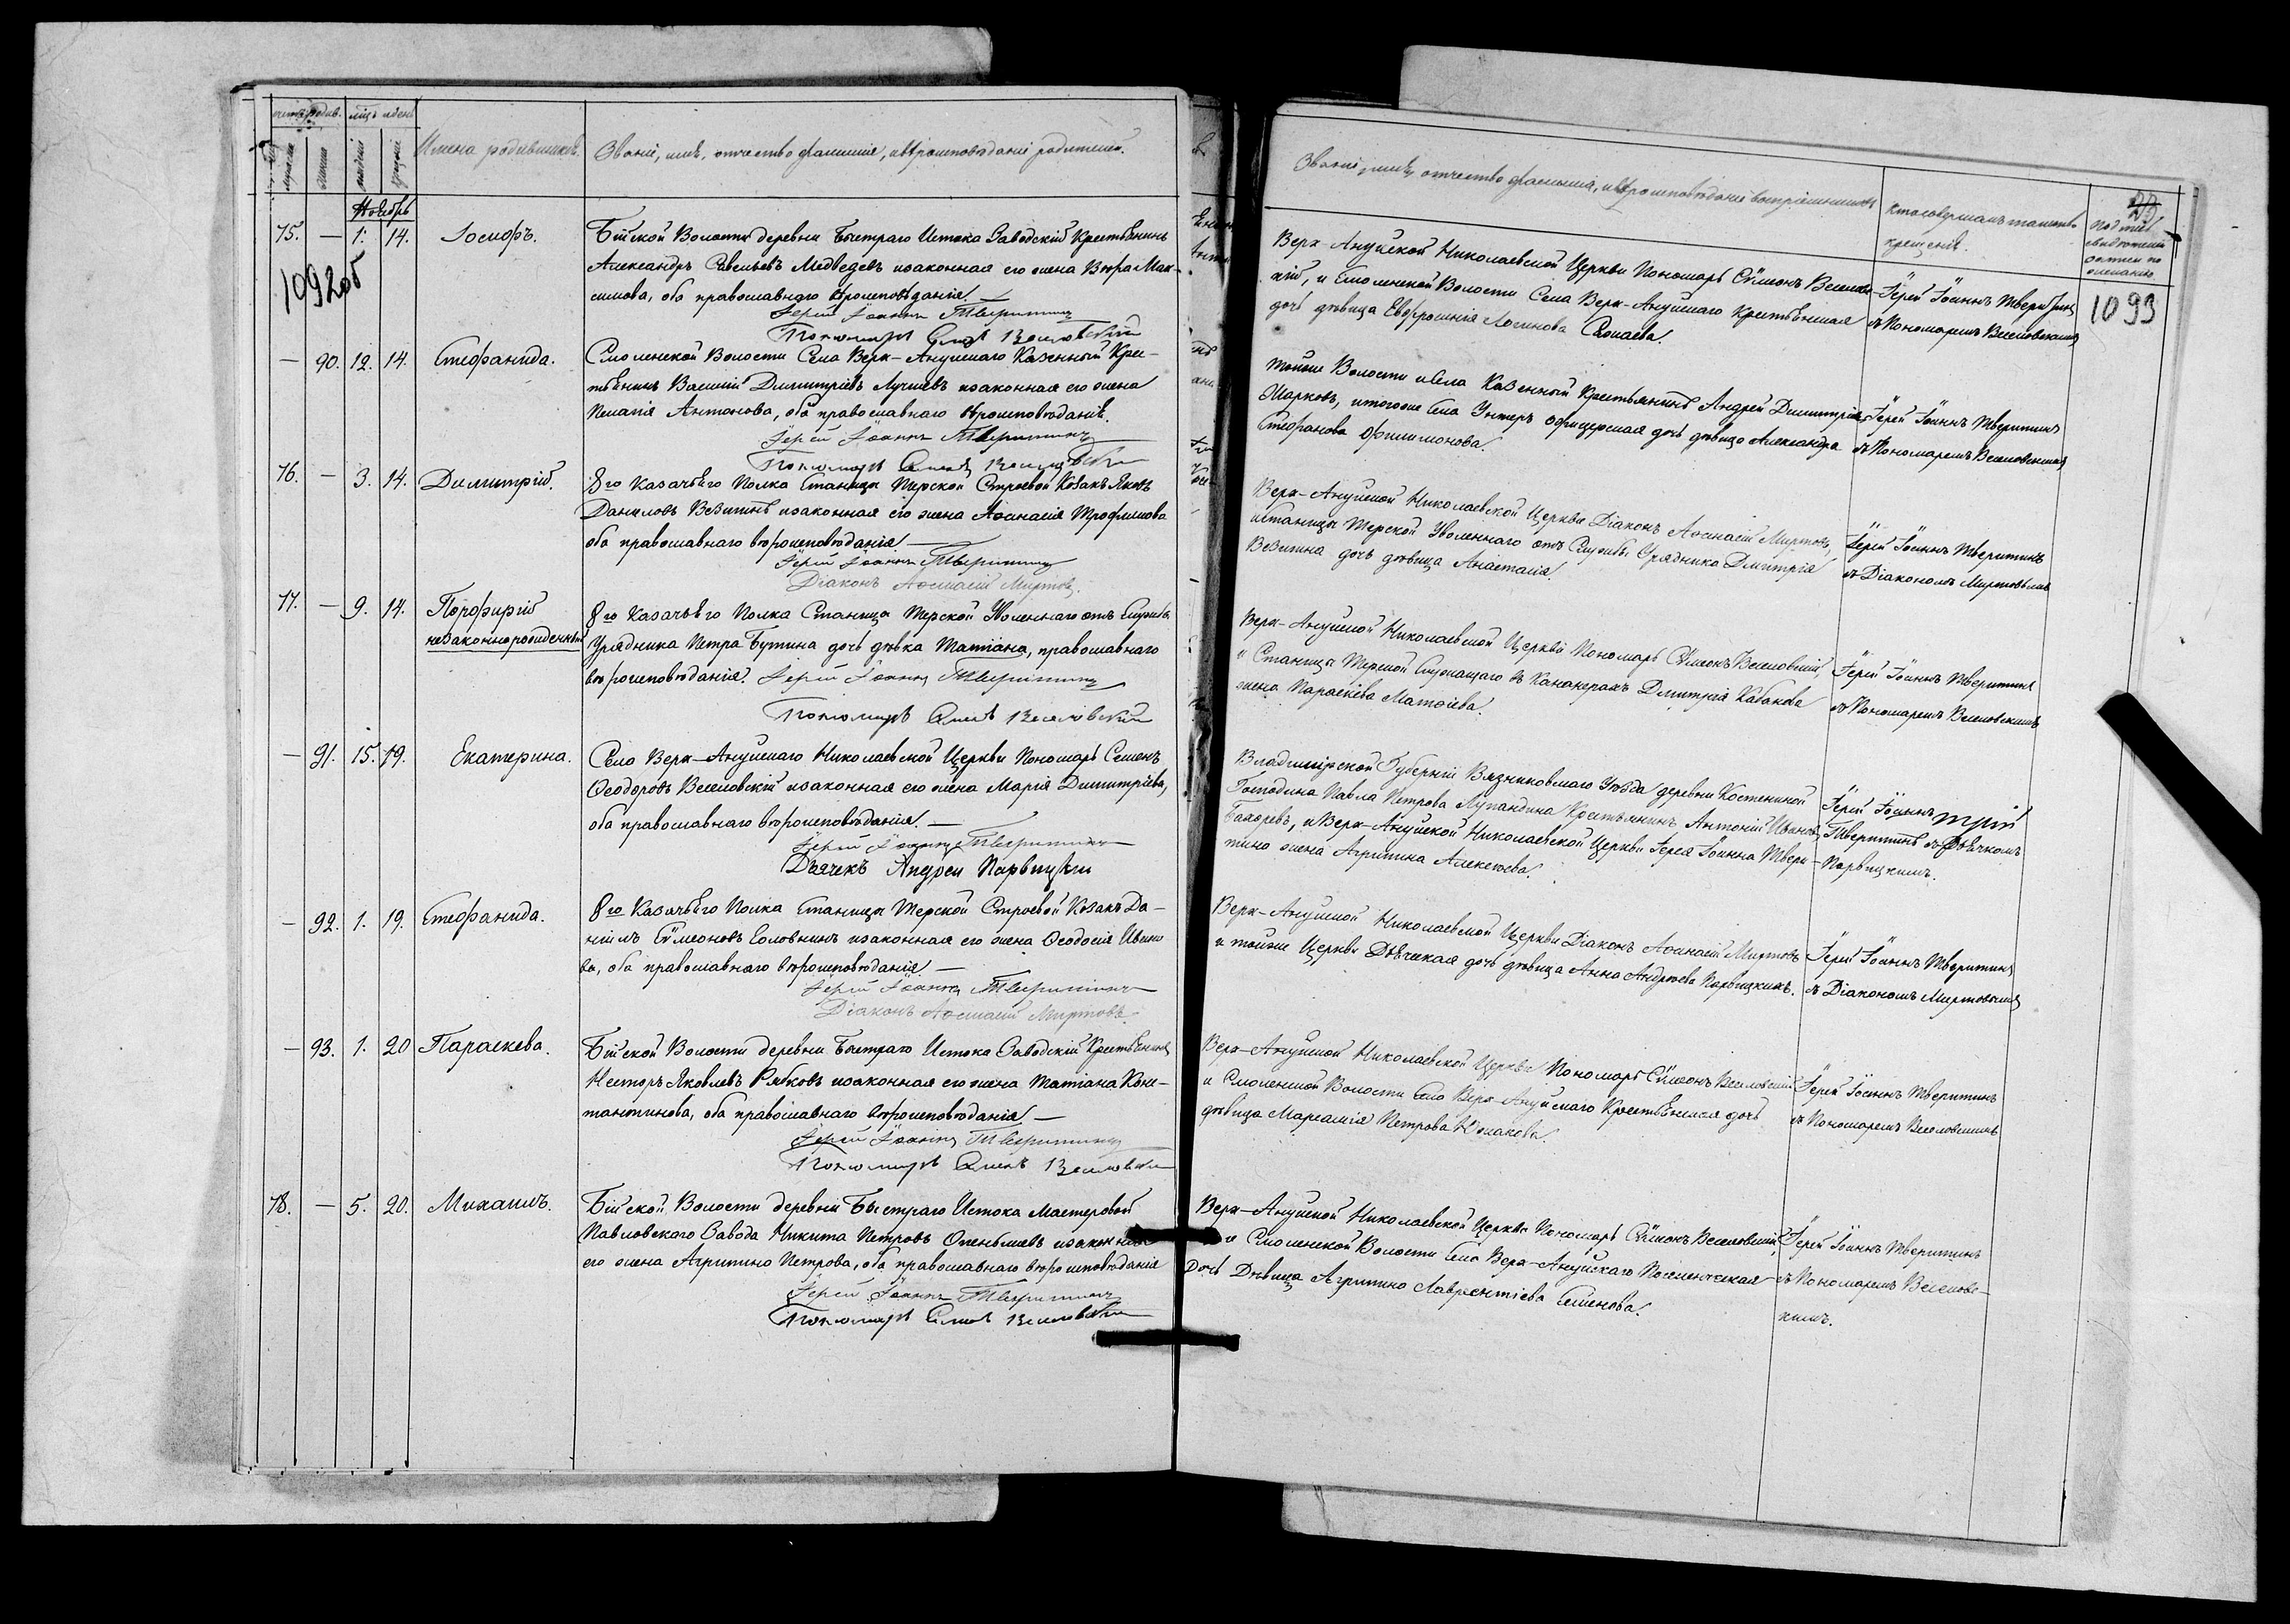 Имена родившихся.
Званіе, имя, отчество и фамилія, и вѣроисповѣданіе родителей.
Ноябрь
75. — 1. 14. Іосифъ.
Бійской Волости деревни Быстраго Истока Заводскій Крестьянинъ
Александръ Савельевъ Медведевъ и законная его жена Вѣра Мак-
симова, оба православнаго вѣроисповѣданія —
Іерей Іоаннъ Тверитинъ
Пономарь Симеонъ Веселовскій
1092об
— 90. 12. 14. Стефанида.
Смоленской Волости Села Верх-Ануйскаго Казенный Крес-
тьянинъ Василій Димитріевъ Лучшевъ и законная его жена
Пелагія Антонова, оба православнаго вѣроисповѣданія.
Іерей Іоаннъ Тверитинъ
Пономарь Симеонъ Веселовскій
76. — 3. 14. Димитрій.
8го Казачьяго Полка Станицы Терской Строевой Козакъ Яковъ
Даниловъ Везигинъ и законная его жена Аѳанасія Трофимова
оба православнаго вѣроисповѣданія —
Іерей Іоаннъ Тверитинъ
Діаконъ Аѳанасій Миртовъ.
77. — 9. 14. Порфирій
незаконнорожденный
8го Казачьяго Полка Станица Терской Уволеннаго отъ Службы
Урядника Петра Бутина дочь дѣвка Татіана, православнаго
вѣроисповѣданія. Іерей Іоаннъ Тверитинъ
Пономарь Симеонъ Веселовскій
— 91. 15. 19. Екатерина.
Село Верх-Ануйскаго Николаевской Церкви Пономарь Семенъ
Ѳеодоровъ Веселовскій и законная его жена Марія Димитріева,
оба православнаго вѣроисповѣданія. —
Іерей Іоаннъ Тверитинъ
Дьячекъ Андрей Парвицкій
— 92. 1. 19. Стефанида.
8го Казачьяго Полка Станицы Терской Строевой Козакъ Да-
ніилъ Симеоновъ Головнинъ и законная его жена Ѳеодосія Ивано
ва, оба православнаго вѣроисповѣданія —
Іерей Іоаннъ Тверитинъ
Діаконъ Аѳанасій Миртовъ
— 93. 1. 20 Параскева.
Бійской Волости деревни Быстраго Истока Заводскій Крестьянинъ
Несторъ Яковлевъ Рябковъ и законная его жена Татіана Конс-
тантинова, оба православнаго вѣроисповѣданія —
Іерей Іоаннъ Тверитинъ
Пономарь Симеонъ Веселовскій
78. — 5. 20. Михаилъ.
Бійской Волости деревни Быстраго Истока Мастеровой
Павловскаго Завода Никита Петровъ и законная
его жена Агрипина Петрова, оба православнаго вѣроисповѣданія
Іерей Іоаннъ Тверитинъ
Пономарь Симеонъ Веселовскій
Званіе, имя, отчество и фамилія, и вѣроисповѣданіе воспріемниковъ
Кто совершалъ таинство
крещенія.
1093
Верх-Ануйской Николаевской Церкви Пономарь Симеонъ Веселовс-
кій, и Смоленской Волости Села Верх-Ануйскаго Крестьянская
дочь дѣвица Евфросинія Логинова
Іерей Іоаннъ Тверитинъ
съ Пономаремъ Веселовскимъ
тойже Волости и Села Казенный Крестьянинъ Андрей Димитріевъ
Марковъ, и тогоже Села Унтеръ офицерская дочь дѣвица Александра
Стефанова Филимонова.
Іерей Іоаннъ Тверитинъ
съ Пономаремъ Веселовскимъ
Верх-Ануйской Николаевской Церкви Діаконъ Аѳанасій Миртовъ,
и Станицы Терской Уволеннаго отъ Службы Урядника Дмитрія
Везигина дочь дѣвица Анастасія.
Іерей Іоаннъ Тверитинъ
съ Діакономъ Миртовымъ
Верх-Ануйской Николаевской Церкви Пономарь Симеонъ Веселовскій,
и Станицы Терской Служащаго въ Канонерахъ Дмитрія Кабанова
жена Параскева Матѳіева.
Іерей Іоаннъ Тверитинъ
съ Пономаремъ Веселовскимъ
Владимірской Губерніи Вязниковскаго Уѣзда деревни Костениной
Господина Павла Петрова Лупандина Крестьянинъ Антоній Ивановъ
Бахоревъ, и Верх-Ануйской Николаевской Церкви Іерея Іоанна Твери-
тина жена Агрипина Алексѣева.
Іерей Іоаннъ
Тверитинъ съ Дьячкомъ
Парвицкимъ.
Верх-Ануйской Николаевской Церкви Діаконъ Аѳанасій Миртовъ
и тойже Церкви Дьяческая дочь дѣвица Анна Андреева Парвицкихъ.
Іерей Іоаннъ Тверитинъ
съ Діакономъ Миртовымъ
Верх-Ануйской Николаевской Церкви Пономарь Симеонъ Веселовскій
и Смоленской Волости Села Верх-Ануйскаго Крестьянская дочь
дѣвица Петрова Юшакова.
Іерей Іоаннъ Тверитинъ
съ Пономаремъ Веселовскимъ
Верх-Ануйской Николаевской Церкви Пономарь Симеонъ Веселовскій,
и Смоленской Волости Села Верх-Ануйскаго Поселенческая
Дочь Дѣвица Агрипина Лаврентіева Семенова.
Іерей Іоаннъ Тверитинъ
съ Пономаремъ Веселовс-
кимъ.